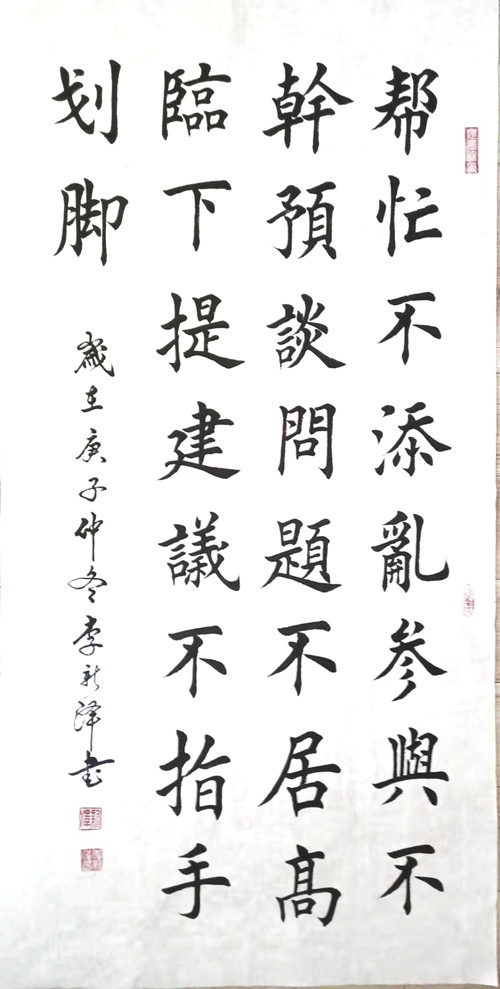 帮忙不添亂参與不
幹預談問題不居高
臨下提建議不指手
划脚
歲在庚子仲冬李新泽書